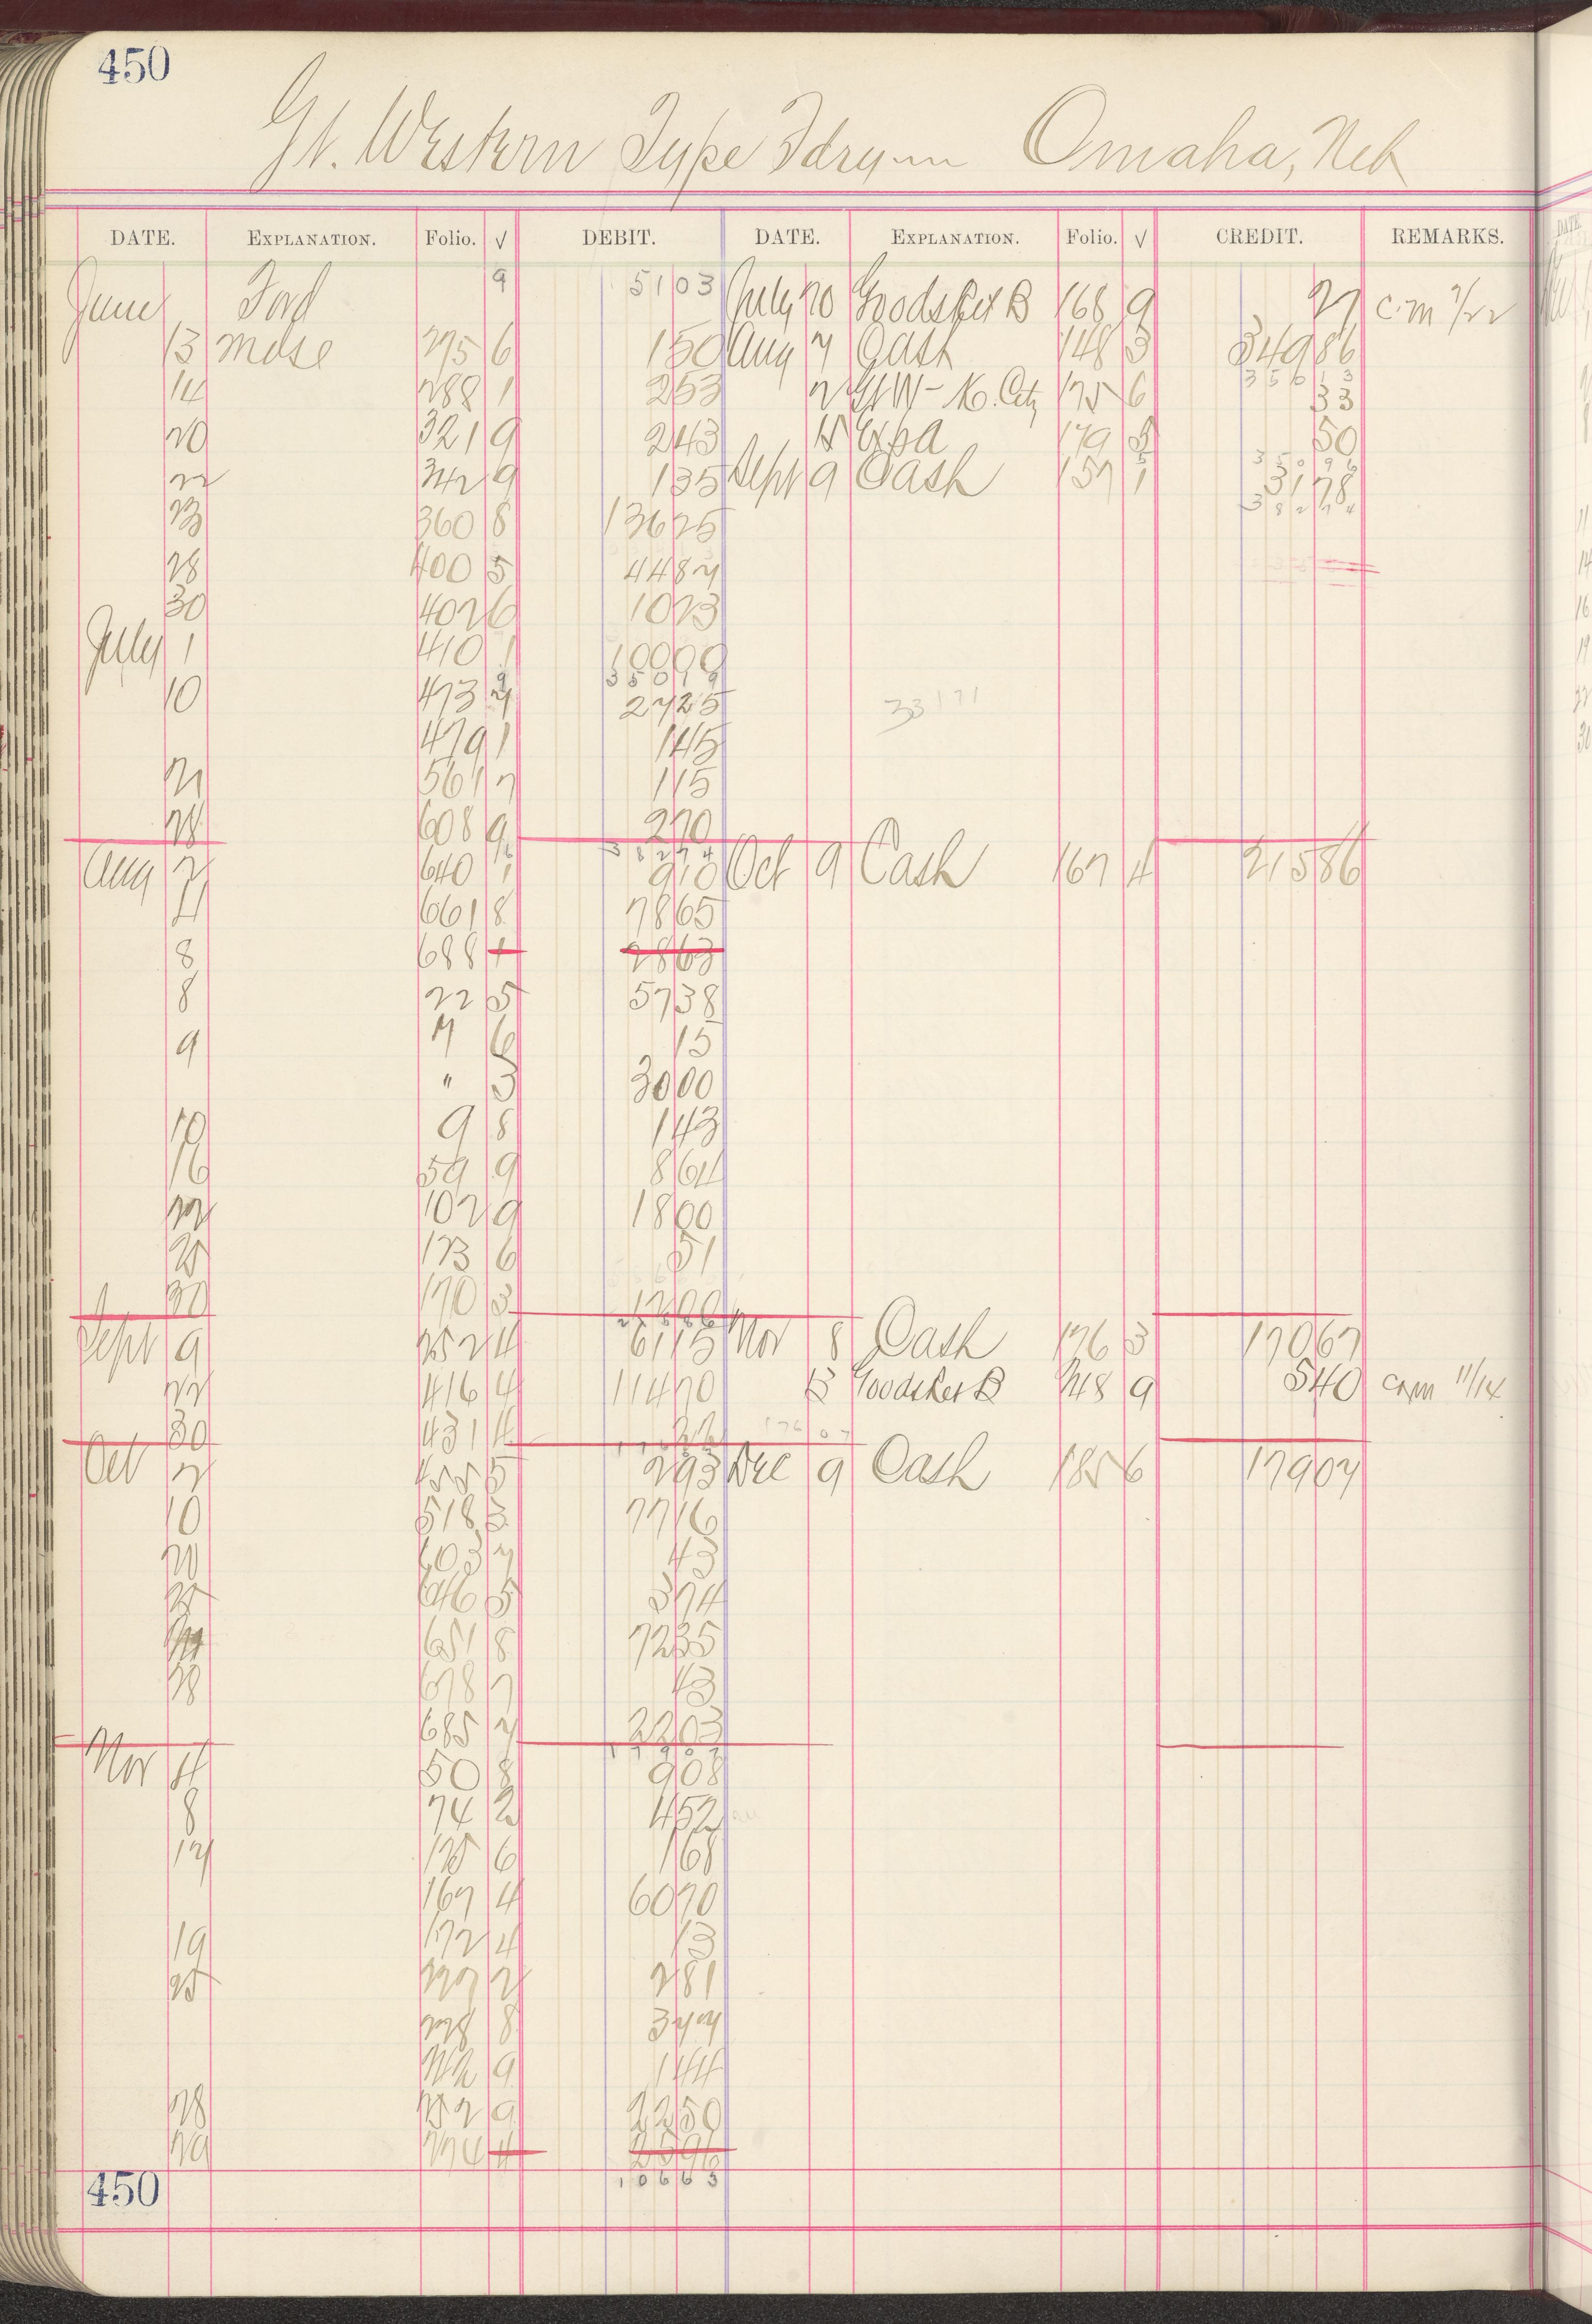 450
Gt. Western Type Fdry — Omaha, Neb
DATE. EXPLANATION. Folio. √ DEBIT. DATE. EXPLANATION. Folio. √ CREDIT. REMARKS.
June Ford 9 5103 July 20 Goods Ret B 168 9 27 c.m 7/22
13 mdse 275 6 150 Aug 7 Cash 148 3 34986
14 288 1 253 Gt W - K. City 175 6 33
20 321 9 243 Expa 179 50
22 342 9 135 Sept 9 Cash 157 1 3178
23 360 8 13625 38274
28 400 5 4487
30 402 6 1023
July 1 410 1 10000
35019
10 473 2725 33171
479 1 145
21 561 7 115
28 608 9 270
38274
Aug 2 640 1 910 Oct 9 Cash 167 4 21586
4 661 8 7865
8 688 2863
8 22 5 5738
9 " 6 15
" 3 3000
10 9 8 143
16 59 9 864
22 102 9 1800
25 123 6 51
30 170 3 1200
21586
Sept 9 252 4 6115 Nov 8 Cash 176 3 17067
22 416 4 11470 15 Goods Ret B 248 9 540 crm 11/14
30 431 4 22 17607
17607
Oct 7 455 5 293 Dec 9 Cash 185 6 17907
10 518 3 7716
20 603 7 43
25 646 5 374
651 8 7235
28 678 7 43
685 7 2203
17907
Nov 4 50 8 908
8 74 2 452
17 125 6 168
167 4 6070
19 172 4 13
25 227 2 281
228 8 377
9 144
28 252 9 2250
29 274 4 2596
10663
450